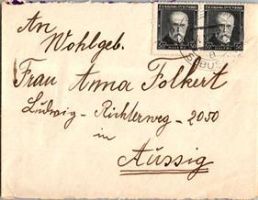 An
Wohlgeb.
Frau Anna Folkert
Ludwig - Richterweg - 2050
in
Aussig